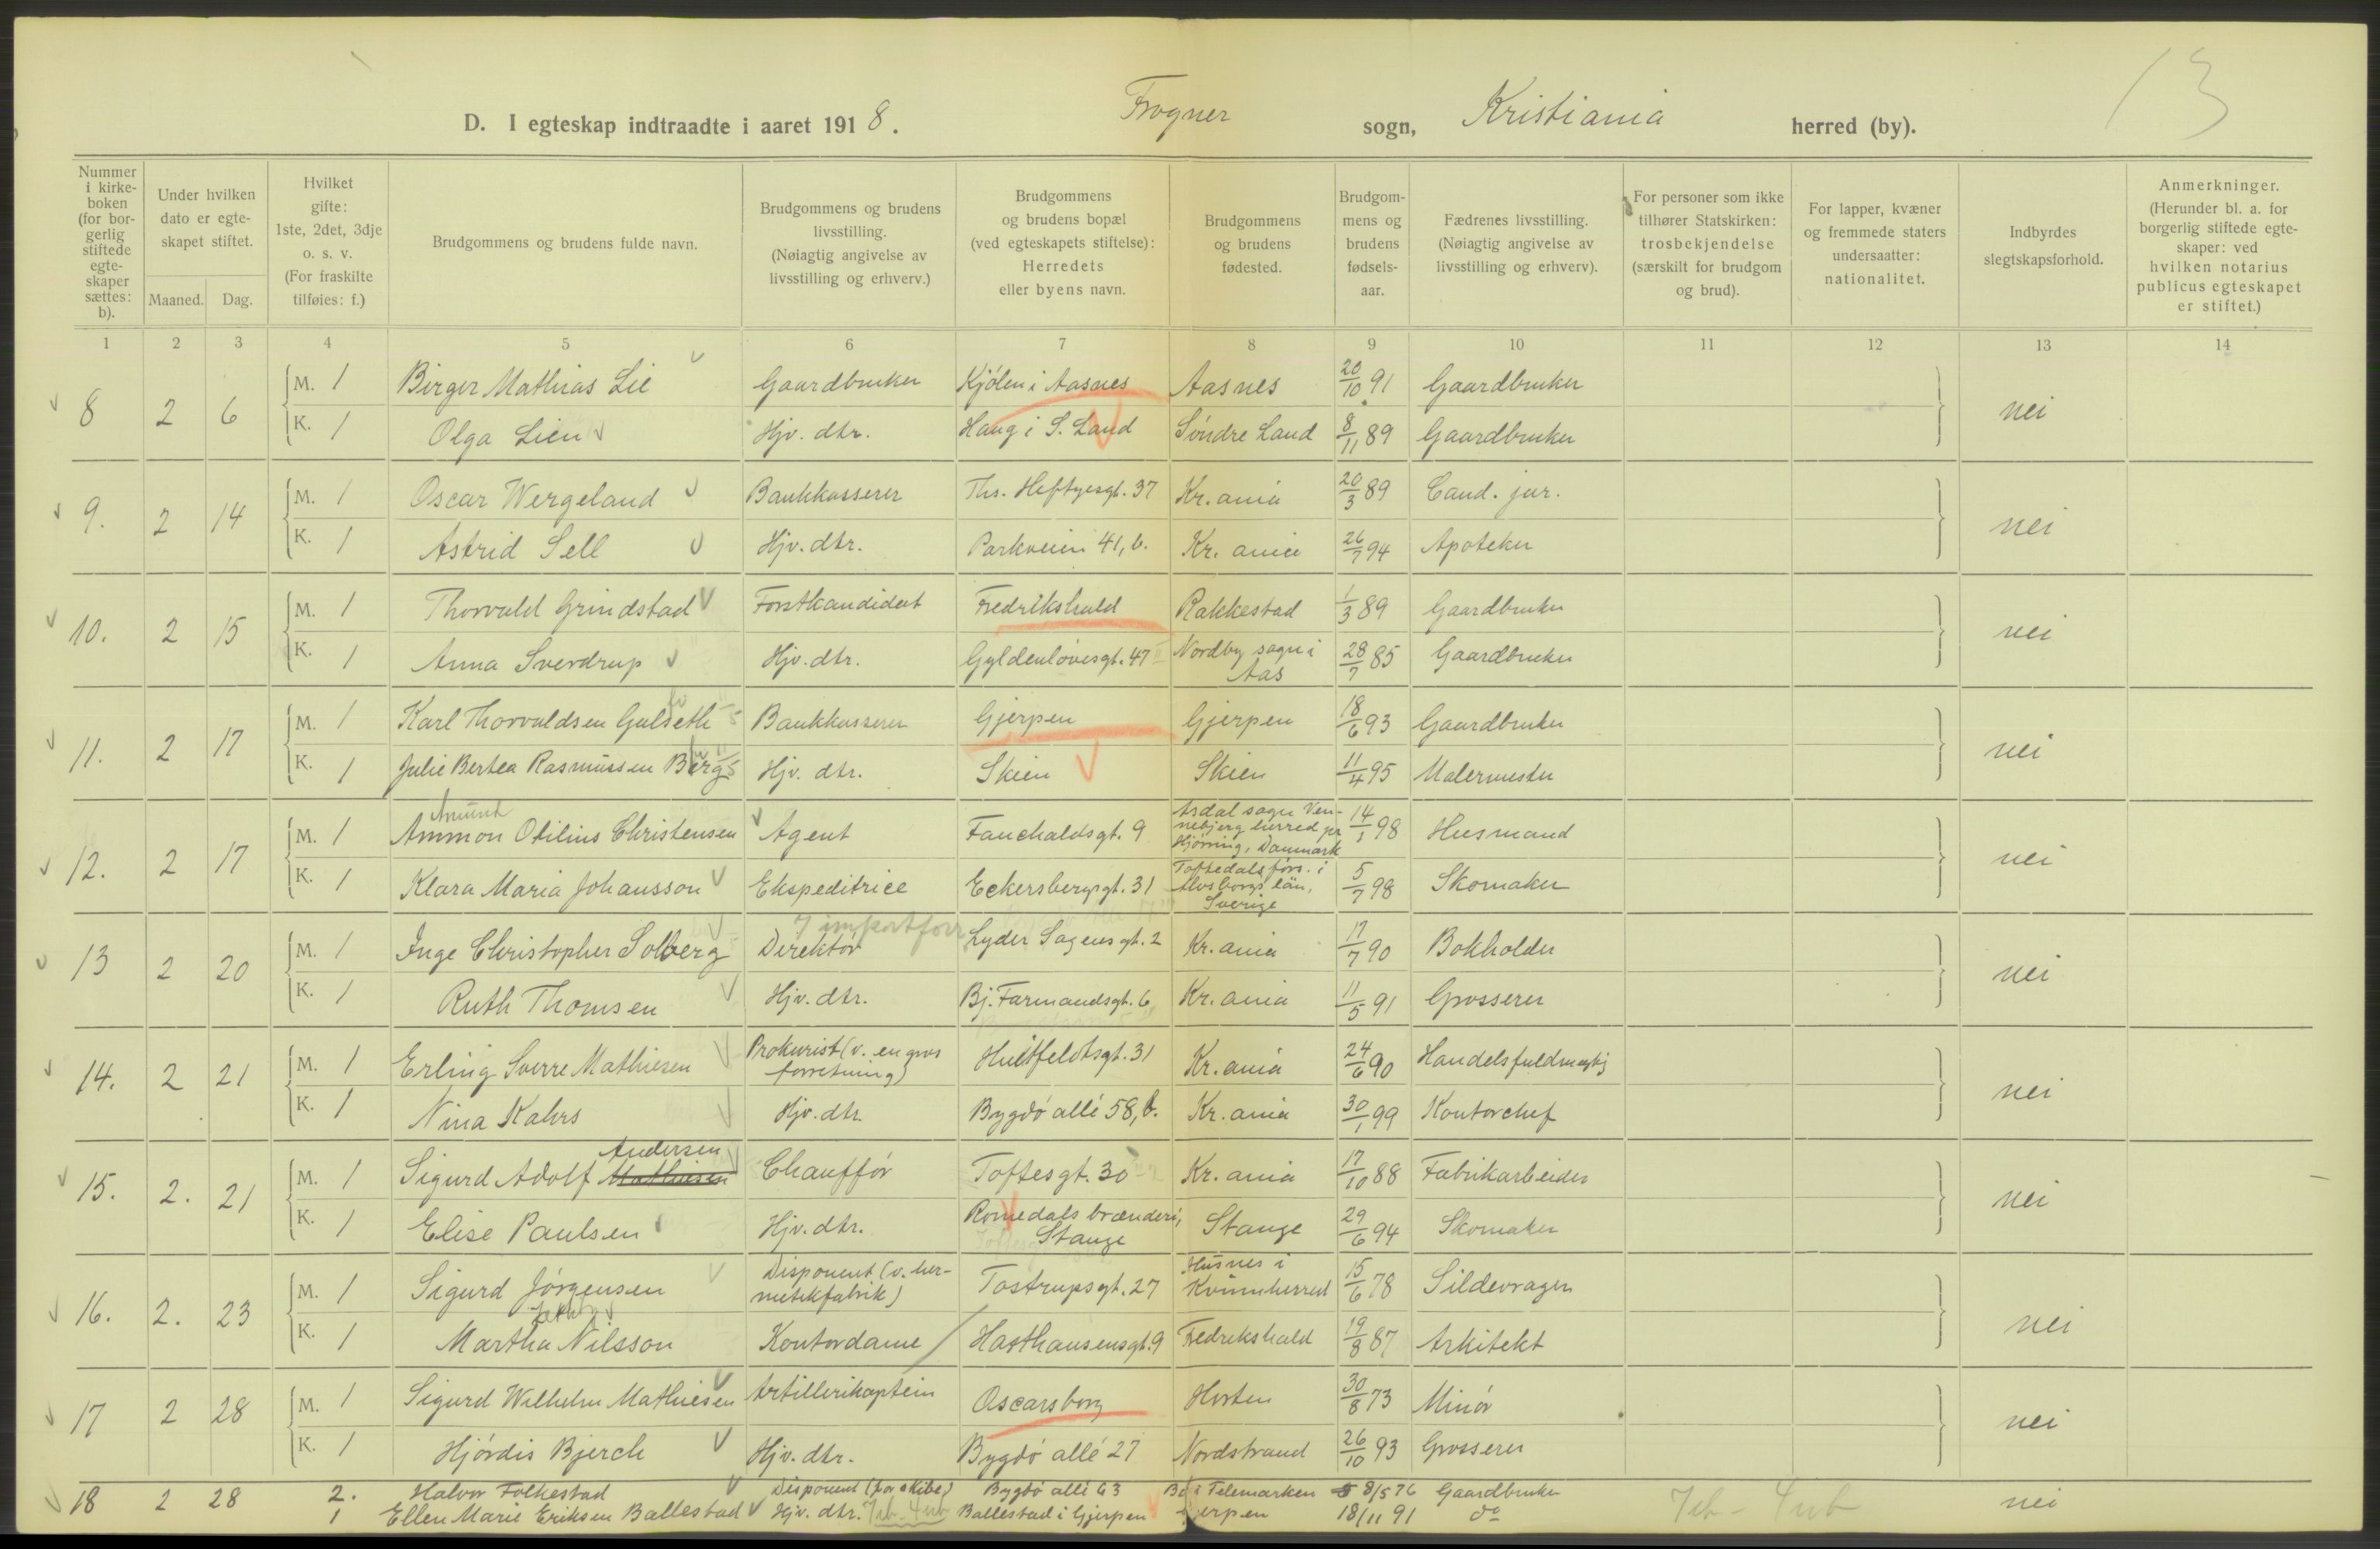 13
D. I egteskap indtraadte i aaret 1918. Frogner sogn, Kristiania herred (by).
Nummer i kirke-boken (for bor-gerlig stiftede egte-skaper sættes: b).
Under hvilken dato er egte-skapet stiftet.
Maaned. Dag.
Hvilket gifte: 1ste, 2det, 3dje o. s. v. (For fraskilte tilføies: f.)
Brudgommens og brudens fulde navn.
Brudgommens og brudens livsstilling. (Nøiagtig angivelse av livsstilling og erhverv.)
Brudgommens og brudens bopæl (ved egteskapets stiftelse): Herredets eller byens navn.
Brudgommens og brudens fødested.
Brudgom-mens og brudens fødsels-aar.
Fædrenes livsstilling. (Nøiagtig angivelse av livsstilling og erhverv).
For personer som ikke tilhører Statskirken: trosbekjendelse (særskilt for brudgom og brud).
For lapper, kvæner og fremmede staters undersaatter: nationalitet.
Indbyrdes slegtskapsforhold.
Anmerkninger. (Herunder bl. a. for borgerlig stiftede egte-skaper: ved hvilken notarius publicus egteskapet er stiftet.)
1 2 3 4 5 6 7 8 9 10 11 12 13 14
8 2 6 M. 1 Birger Mathias Lie Gaardbruker Kjölen i Aasnes Aasnes 20/10 91 Gaardbruker nei
K. 1 Olga Lien Hjv. dtr. Haug i S. Land Söndre Land 8/11 89 Gaardbruker
9. 2 14 M. 1 Oscar Wergeland Bankkasserer Ths. Heftyesgt. 37 Kr.ania 20/3 89 Cand. jur. nei
K. 1 Astrid Sell Hjv. dtr. Parkveien 41, b. Kr.ania 26/7 94 Apoteker
10. 2 15 M. 1 Thorvald Grindstad Forstkandidat Fredrikshald Rakkestad 1/3 89 Gaardbruker nei
K. 1 Anna Sverdrup Hjv. dtr. Gyldenlövesgt. 47 Nordby sogn i Aas 28/7 85 Gaardbruker
11. 2 17 M. 1 Karl Thorvaldsen Gulseth Bankkasserer Gjerpen Gjerpen 18/6 93 Gaardbruker nei
K. 1 Julie Bertea Rasmussen Berg Hjv. dtr. Skien Skien 11/4 95 Malermester
Amund
12. 2 17 M. 1 Ammon Otilius Christensen Agent Fauchaldsgt. 9 Asdal sogn Ven-nebjerg herred pr Hjörring, Danmark 14/1 98 Husmand nei
K. 1 Klara Maria Johansson Ekspeditrice Eckersbergsgt. 31 Töftedals förs. i Elvsborgs län, Sverige 5/7 98 Skomaker
i importforr.
13 2 20 M. 1 Inge Christopher Solberg Direktör Lyder Sagensgt. 2 Kr.ania 17/7 90 Bokholder nei
K. 1 Ruth Thomsen Hjv. dtr. Bj. Farmandsgt. 6 Kr.ania 11/5 91 Grosserer
14. 2 21 M. 1 Erling Sverre Mathiesen Prokurist (v. en gros forretning) Huitfeldtsgt. 31 Kr.ania 24/6 90 Handelsfuldmægtig nei
K. 1 Nina Kahrs Hjv. dtr. Bygdö allé 58, b. Kr.ania 30/1 99 Kontorchef
Andersen
15. 2. 21 M. 1 Sigurd Adolf Mathiesen Chaufför Toftesgt. 30 Kr.ania 17/10 88 Fabrikarbeider nei
K. 1 Elise Paulsen Hjv. dtr. Romedals brænderi, Stange Stange 29/6 94 Skomaker
16. 2. 23 M. 1 Sigurd Jörgensen Disponent (v. her-metikfabrik) Tostrupsgt. 27 Husnes i Kvinnherred 15/6 78 Sildevrager nei
K. 1 Martha Nilsson Kontordame Hasthausensgt. 9 Fredrikshald 19/8 87 Arkitekt
17 2 28 M. 1 Sigurd Wilhelm Mathiesen Artillerikaptein Oscarsborg Horten 30/8 73 Minör nei
K. 1 Hjördis Bjerch Hjv. dtr. Bygdö allé 27 Nordstrand 26/10 93 Grosserer
18 2 28 2. Halvor Folkestad Disponent (for skibe) Bygdö allé 63 Bö i Telemarken 8/5 76 Gaardbruker nei
1 Ellen Marie Eriksen Ballestad Hjv. dtr. Ballestad i Gjerpen Gjerpen 18/11 91 do